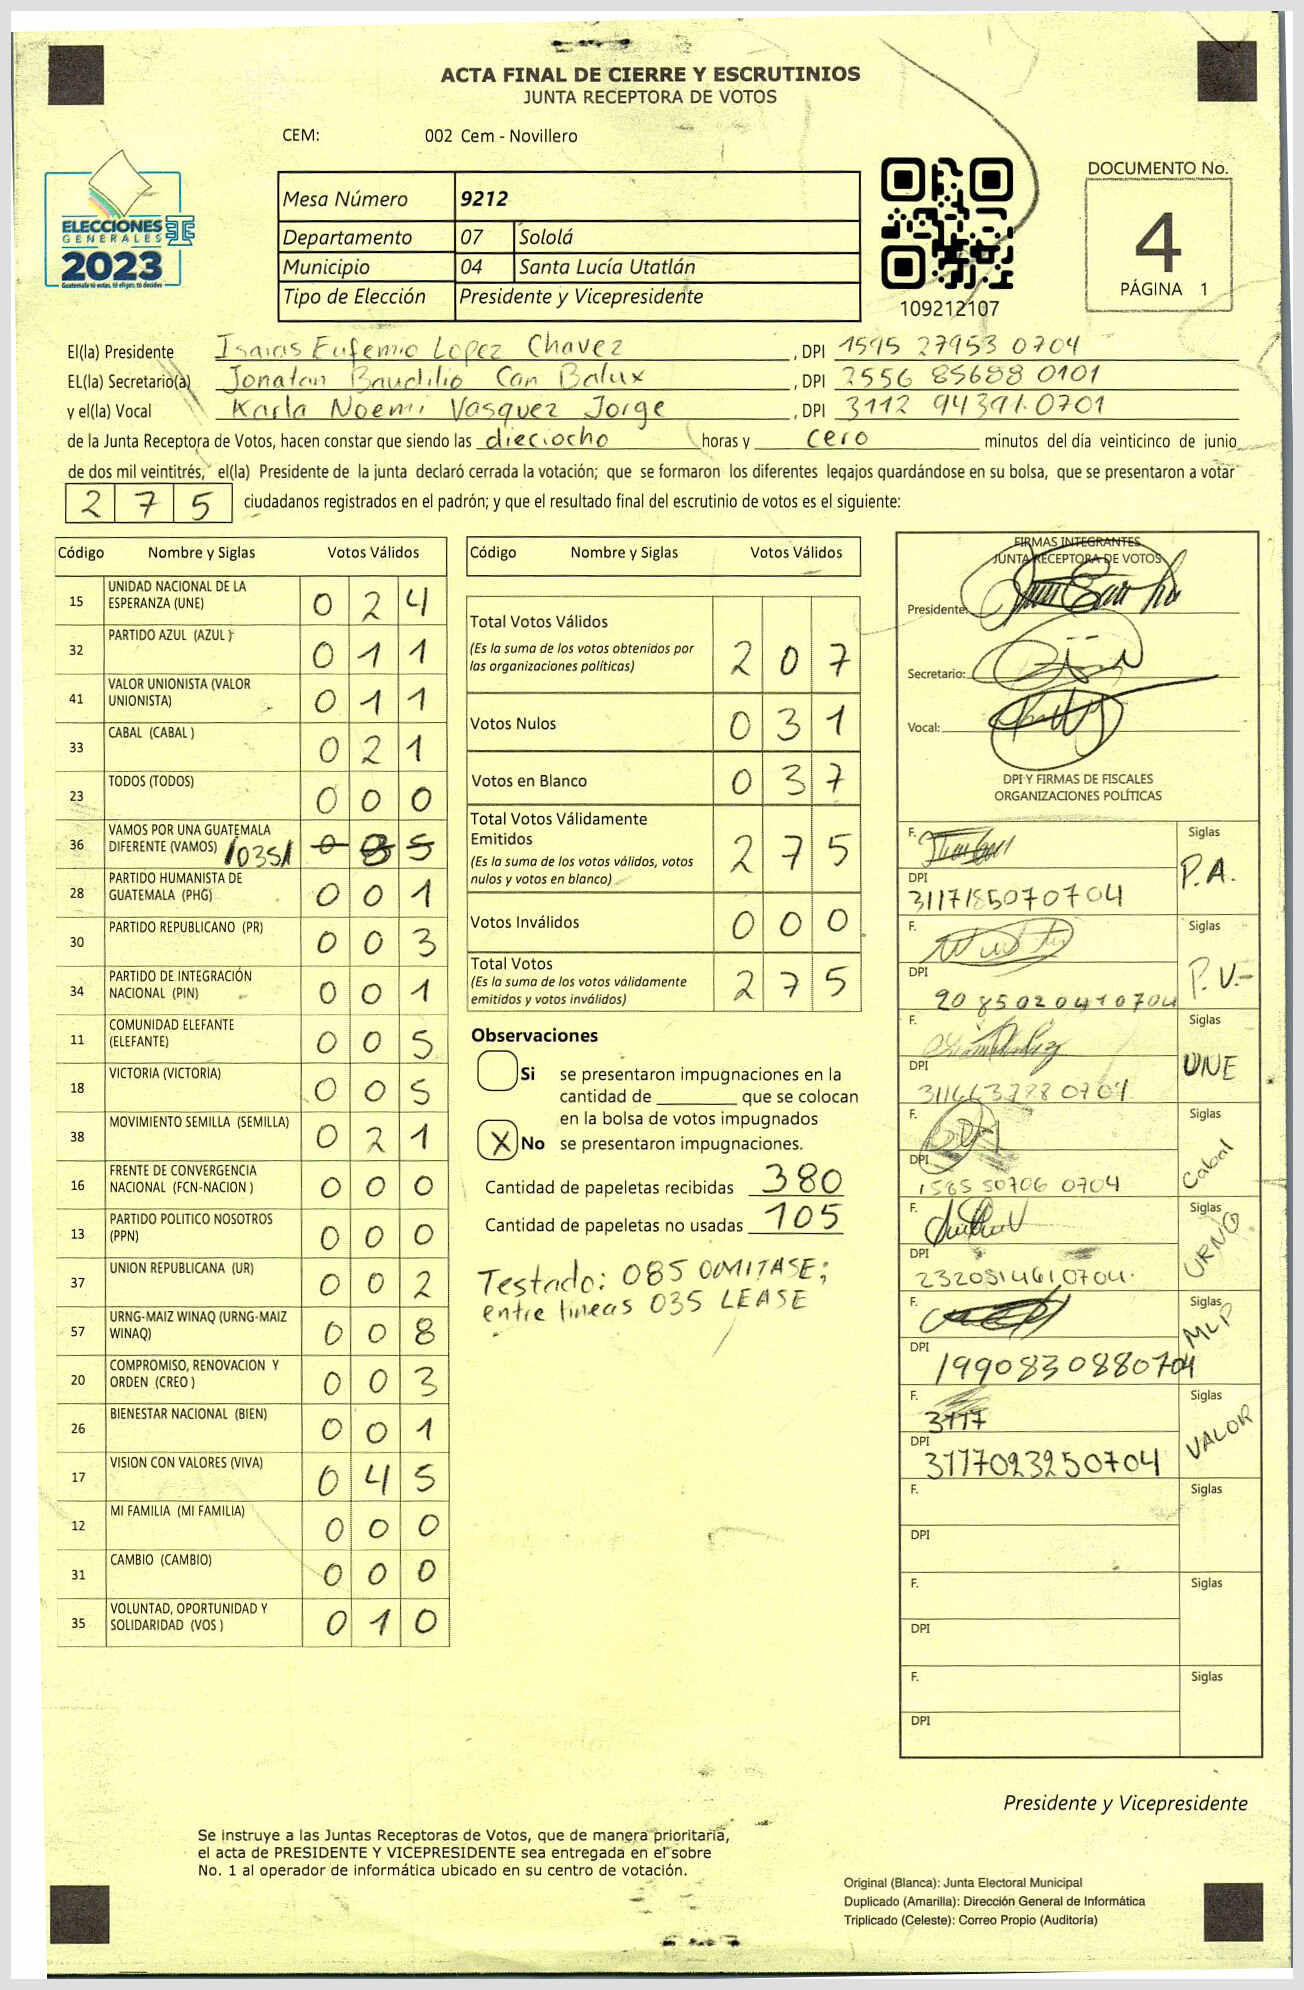 ACTA FINAL DE CIERRE Y ESCRUTINIOS
JUNTA RECEPTORA DE VOTOS
CEM: 002 Cem - Novillero
ELECCIONES
GENERALES
2023
Guatemala tú votas, tú eliges, tú decides
Mesa Número 9212
Departamento 07 Sololá
Municipio 04 Santa Lucía Utatlán
Tipo de Elección Presidente y Vicepresidente
109212107
DOCUMENTO No.
4
PÁGINA 1
El(la) Presidente Isaias Eufemio Lopez Chavez, DPI 1595 27953 0704
EL(la) Secretario(a) Jonatan Baudilio Can Balux, DPI 2556 85688 0101
y el(la) Vocal Karla Noemi Vasquez Jorge, DPI 3112 94391 0701
de la Junta Receptora de Votos, hacen constar que siendo las dieciocho horas y cero minutos del día veinticinco de junio
de dos mil veintitrés, el(la) Presidente de la junta declaró cerrada la votación; que se formaron los diferentes legajos guardándose en su bolsa, que se presentaron a votar
275 ciudadanos registrados en el padrón; y que el resultado final del escrutinio de votos es el siguiente:
Código Nombre y Siglas Votos Válidos
15 UNIDAD NACIONAL DE LA ESPERANZA (UNE) 0 2 4
32 PARTIDO AZUL (AZUL ) 0 1 1
41 VALOR UNIONISTA (VALOR UNIONISTA) 0 1 1
33 CABAL (CABAL ) 0 2 1
23 TODOS (TODOS) 0 0 0
36 VAMOS POR UNA GUATEMALA DIFERENTE (VAMOS) /035/ 0 8 5
28 PARTIDO HUMANISTA DE GUATEMALA (PHG) 0 0 1
30 PARTIDO REPUBLICANO (PR) 0 0 3
34 PARTIDO DE INTEGRACIÓN NACIONAL (PIN) 0 0 1
11 COMUNIDAD ELEFANTE (ELEFANTE) 0 0 5
18 VICTORIA (VICTORIA) 0 0 5
38 MOVIMIENTO SEMILLA (SEMILLA) 0 2 1
16 FRENTE DE CONVERGENCIA NACIONAL (FCN-NACION ) 0 0 0
13 PARTIDO POLITICO NOSOTROS (PPN) 0 0 0
37 UNION REPUBLICANA (UR) 0 0 2
57 URNG-MAIZ WINAQ (URNG-MAIZ WINAQ) 0 0 8
20 COMPROMISO, RENOVACION Y ORDEN (CREO ) 0 0 3
26 BIENESTAR NACIONAL (BIEN) 0 0 1
17 VISION CON VALORES (VIVA) 0 4 5
12 MI FAMILIA (MI FAMILIA) 0 0 0
31 CAMBIO (CAMBIO) 0 0 0
35 VOLUNTAD, OPORTUNIDAD Y SOLIDARIDAD (VOS ) 0 1 0
Código Nombre y Siglas Votos Válidos
Total Votos Válidos 2 0 7
(Es la suma de los votos obtenidos por
las organizaciones políticas)
Votos Nulos 0 3 1
Votos en Blanco 0 3 7
Total Votos Válidamente
Emitidos 2 7 5
(Es la suma de los votos válidos, votos
nulos y votos en blanco)
Votos Inválidos 0 0 0
Total Votos 2 7 5
(Es la suma de los votos válidamente
emitidos y votos inválidos)
Observaciones
Si se presentaron impugnaciones en la
cantidad de ________ que se colocan
en la bolsa de votos impugnados
X No se presentaron impugnaciones.
Cantidad de papeletas recibidas 380
Cantidad de papeletas no usadas 105
Testado: 085 OMITASE;
entre lineas 035 LEASE
FIRMAS INTEGRANTES
JUNTA RECEPTORA DE VOTOS
Presidente:
Secretario:
Vocal:
DPI Y FIRMAS DE FISCALES
ORGANIZACIONES POLÍTICAS
F. Siglas P.A.
DPI 3117185070704
F. Siglas P.V.-
DPI 2085020410704
F. Siglas UNE
DPI
F. Siglas Cabal
DPI 1585 50706 0704
F. Siglas URNG
DPI 2320514610704.
F. Siglas MLP
DPI 1990830880704
F. 3117 Siglas VALOR
DPI 3117023250704
F. Siglas
DPI
F. Siglas
DPI
F. Siglas
DPI
Presidente y Vicepresidente
Se instruye a las Juntas Receptoras de Votos, que de manera prioritaria,
el acta de PRESIDENTE Y VICEPRESIDENTE sea entregada en el sobre
No. 1 al operador de informática ubicado en su centro de votación.
Original (Blanca): Junta Electoral Municipal
Duplicado (Amarilla): Dirección General de Informática
Triplicado (Celeste): Correo Propio (Auditoría)